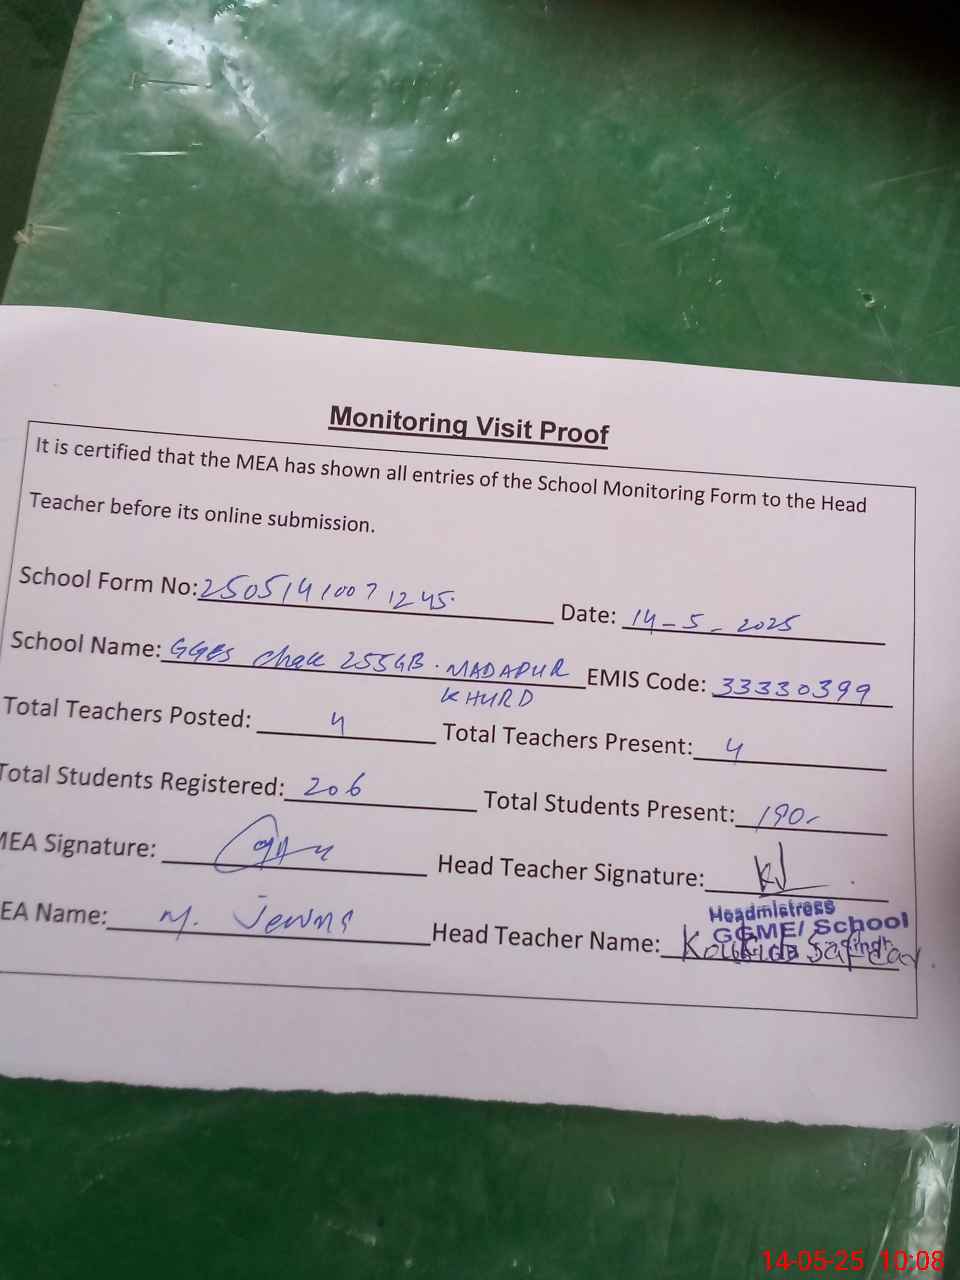 Monitoring Visit Proof
It is certified that the MEA has shown all entries of the School Monitoring Form to the Head
Teacher before its online submission.
School Form No: 25051410071245. Date: 14-5-2025
School Name: GGES Chak 255GB. MADAPUR EMIS Code: 33330399
KHURD
Total Teachers Posted: 4 Total Teachers Present: 4
Total Students Registered: 206 Total Students Present: 190
MEA Signature: Head Teacher Signature:
Headmistress
GGME/School
EA Name: M. Head Teacher Name:
14-05-25 10:08